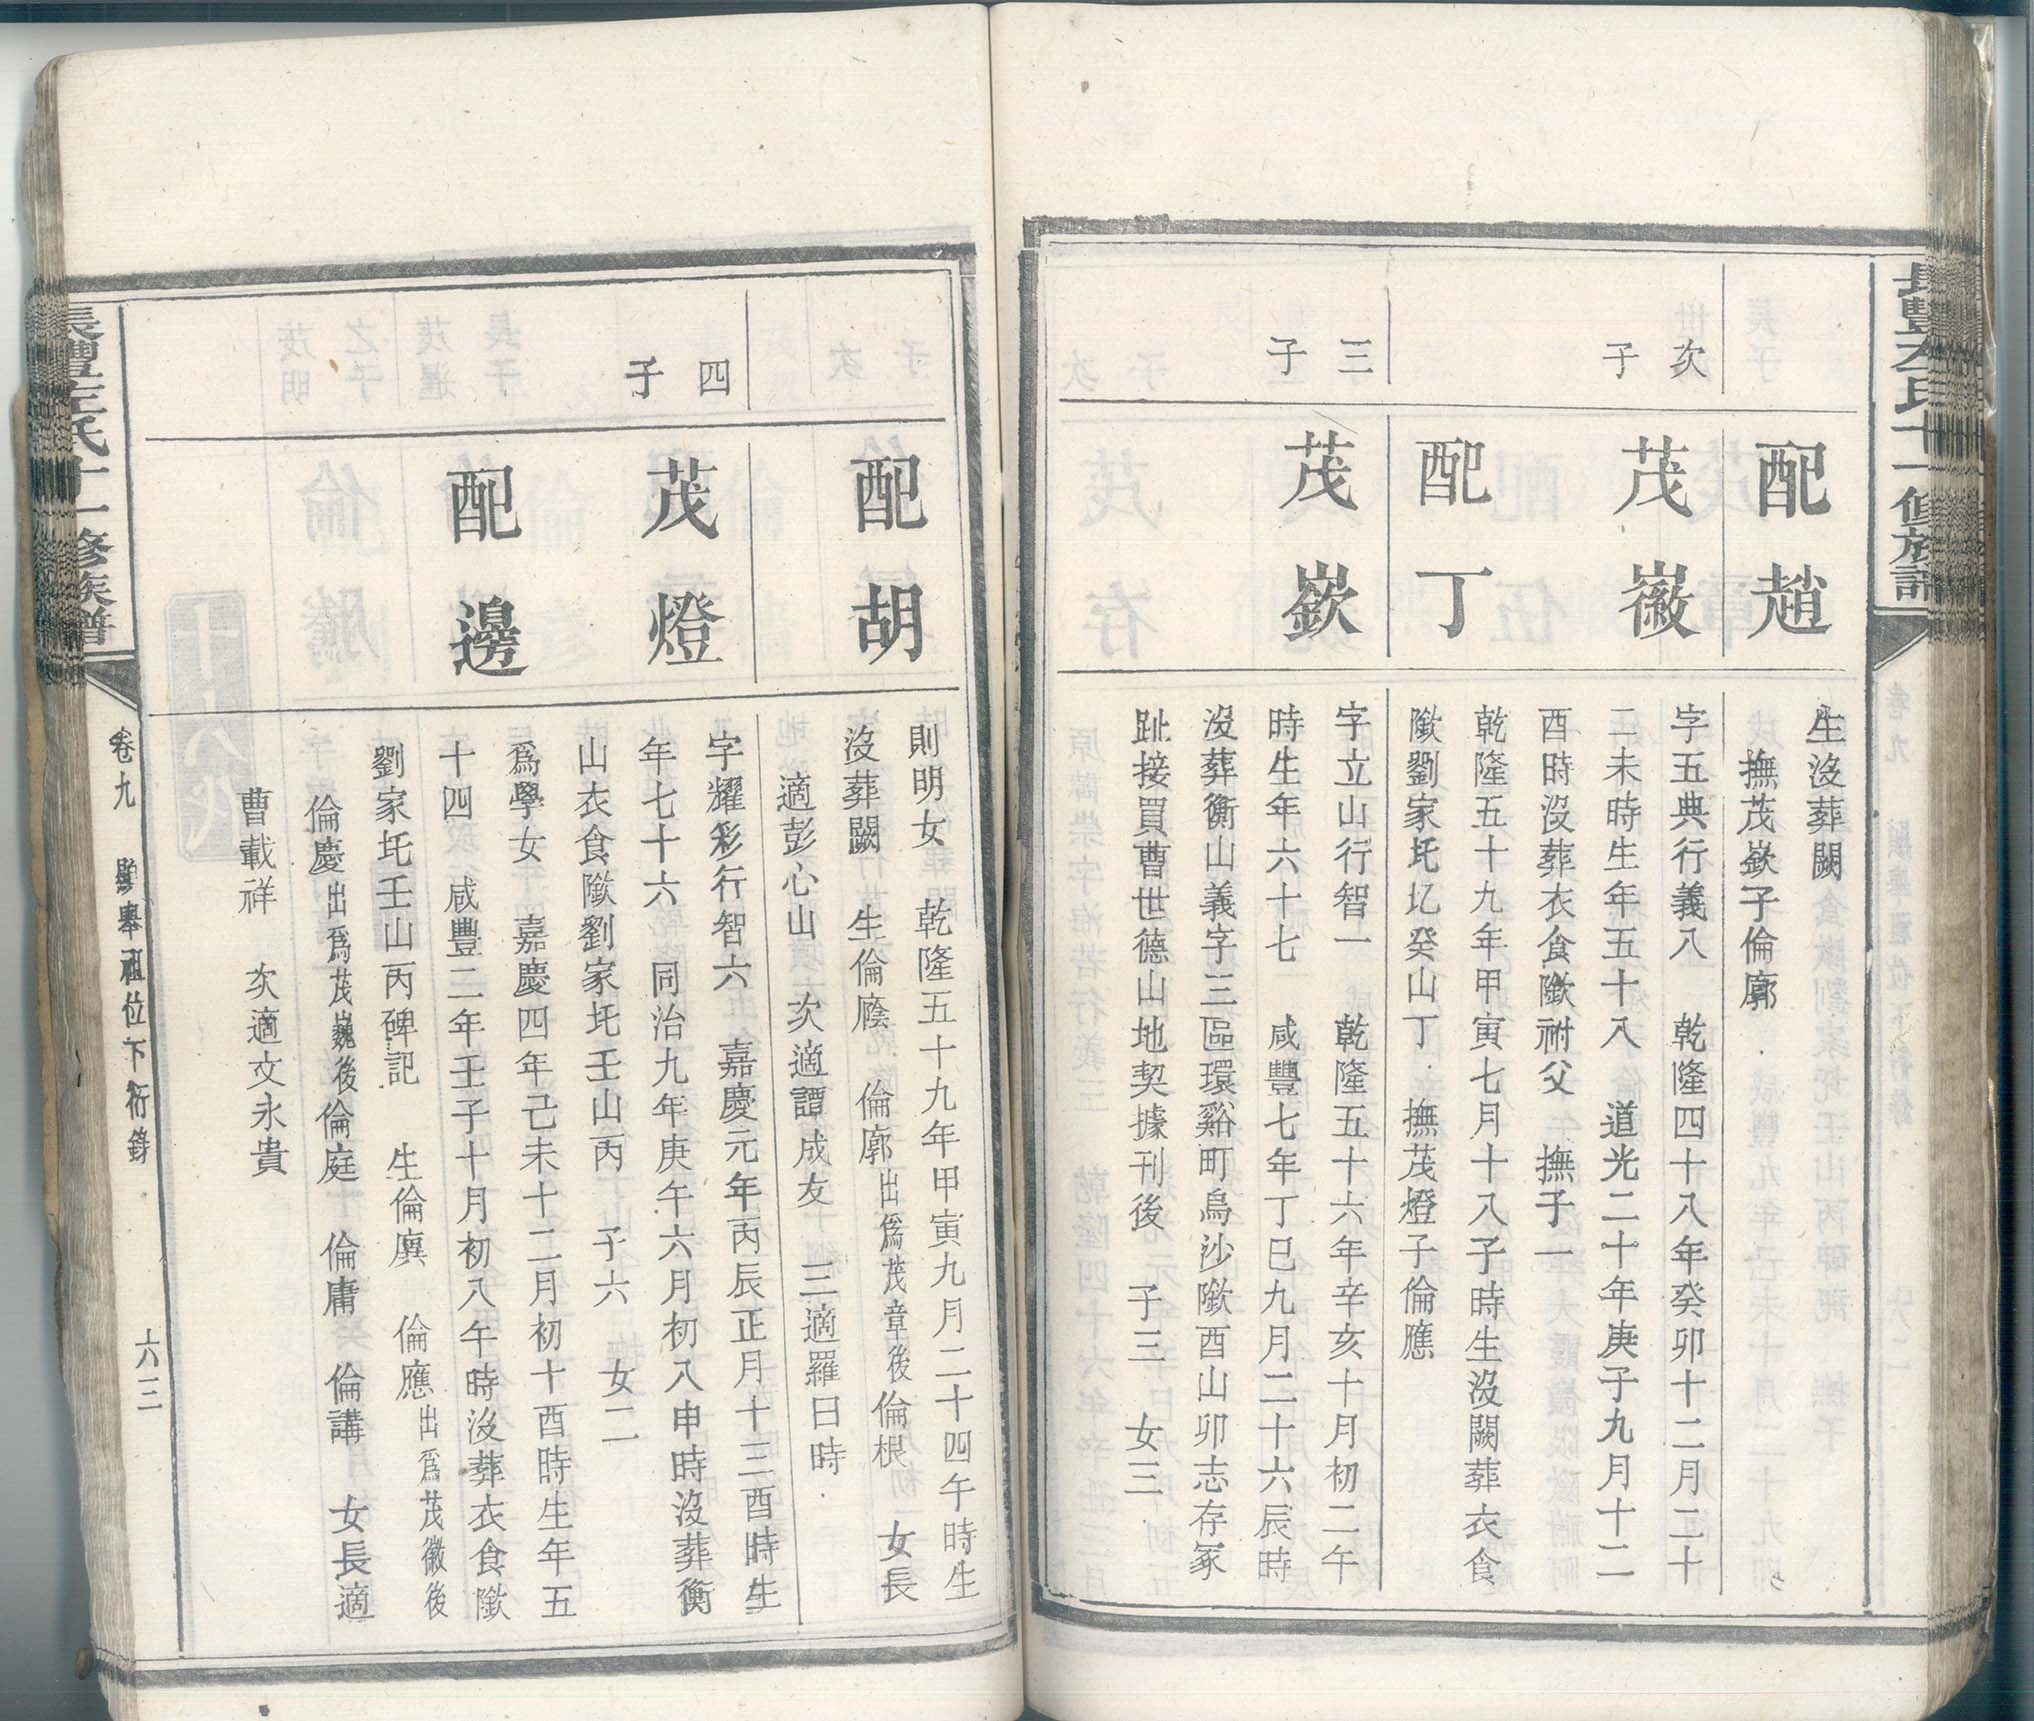 配趙
生沒葬闕
撫茂嶔子倫廓
次子
茂徽
字五典行義八　乾隆四十八年癸卯十二月二十
二未時生年五十八　道光二十年庚子九月十二
酉時沒葬衣食隞祔父　撫子一
配丁
乾隆五十九年甲寅七月十八子時生沒闕葬衣食
隞劉家坉圪癸山丁　撫茂燈子倫應
三子
茂嶔
字立山行智一　乾隆五十六年辛亥十月初二午
時生年六十七　咸豐七年丁巳九月二十六辰時
沒葬衡山義字三區環谿町烏沙隞酉山卯志存冢
趾接買曹世德山地契據刊後　子三　女三
配胡
則明女　乾隆五十九年甲寅九月二十四午時生
沒葬闕　生倫廕　倫廓出爲茂章後倫根　女長
適彭心山　次適譚成友　三適羅日時
四子
茂燈
字耀彩行智六　嘉慶元年丙辰正月十三酉時生
年七十六　同治九年庚午六月初八申時沒葬衡
山衣食隞劉家坉壬山丙　子六　女二
配邊
爲學女　嘉慶四年己未十二月初十酉時生年五
十四　咸豐二年壬子十月初八午時沒葬衣食隞
劉家坉壬山丙碑記　生倫廙　倫應出爲茂徽後
倫慶出爲茂巍後倫庭　倫庸　倫講　女長適
曹載祥　次適文永貴
長豐左氏十一修族譜
卷九　顯舉祖位下衍錄　六三